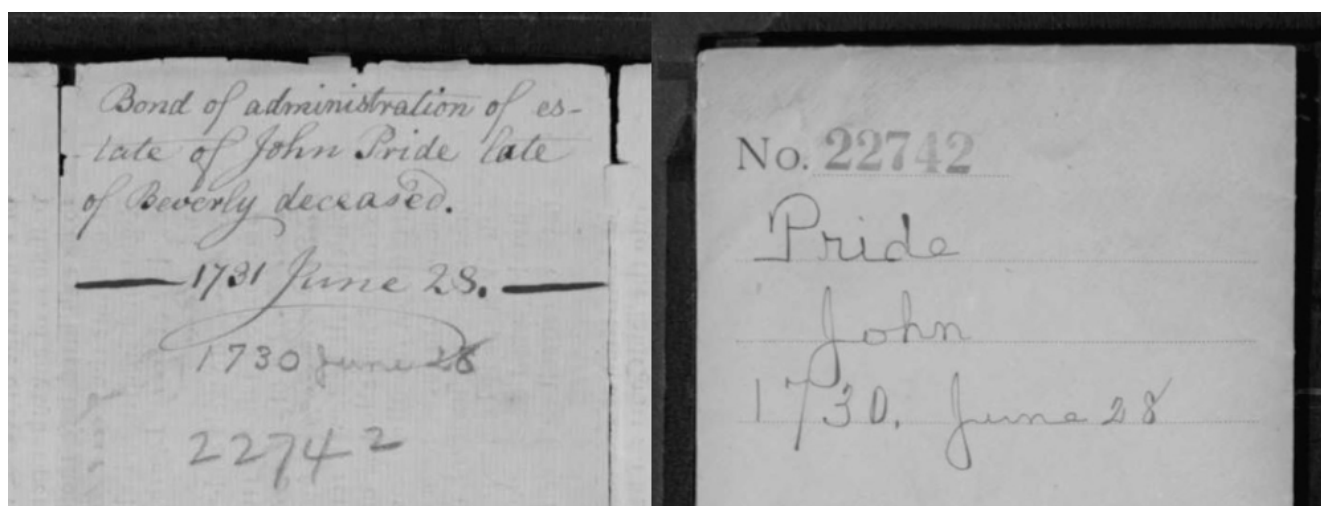 Bond of administration of es-
tate of John Pride late
of Beverly deceased.
1731 June 28.
1730 June 28
22742
No. 22742
Pride
John
1730. June 28